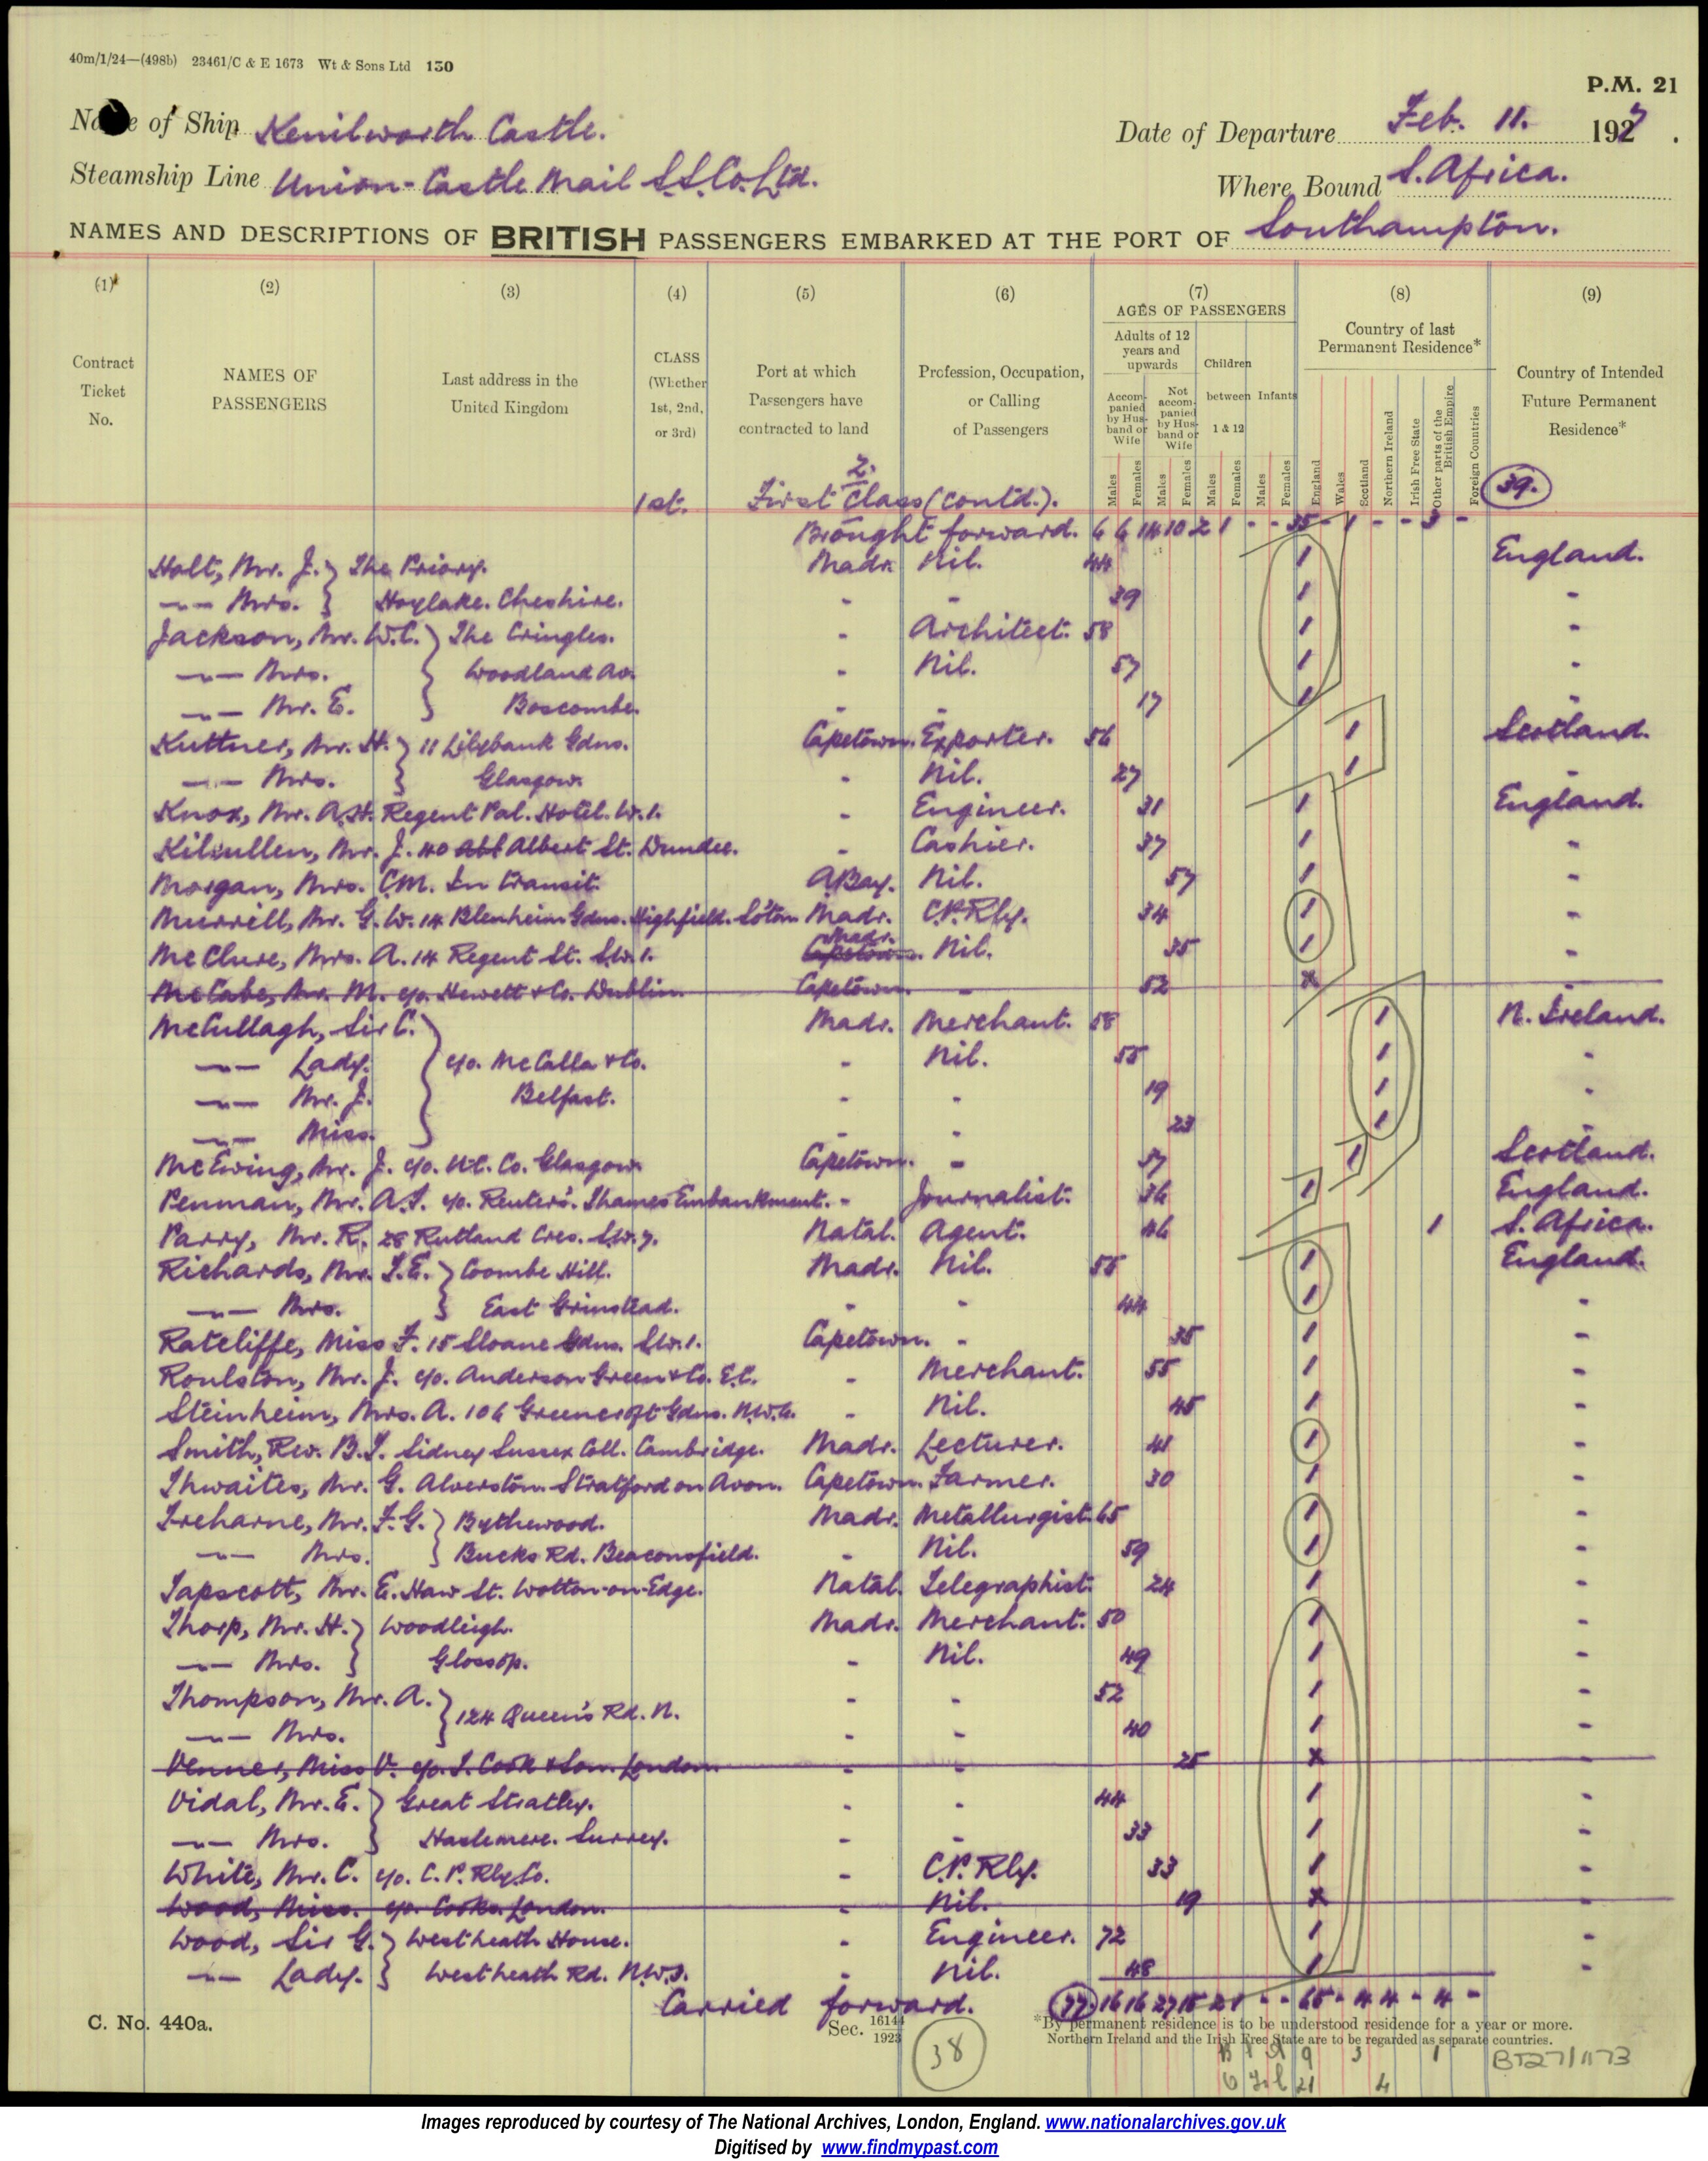 40m/1/24—(498b) 23461/C & E 1673 Wt & Sons Ltd 150
P.M. 21
Name of Ship Kenilworth Castle. Date of Departure Feb. 11. 1927.
Steamship Line Union-Castle Mail S.S.Co. Ltd. Where Bound S. Africa.
NAMES AND DESCRIPTIONS OF BRITISH PASSENGERS EMBARKED AT THE PORT OF Southampton.
(1) (2) (3) (4) (5) (6) (7) (8) (9)
Contract Ticket No.
NAMES OF PASSENGERS
Last address in the United Kingdom
CLASS (Whether 1st, 2nd, or 3rd)
Port at which Passengers have contracted to land
Profession, Occupation, or Calling of Passengers
AGES OF PASSENGERS
Adults of 12 years and upwards
Children between 1 & 12
Infants
Accompanied by Husband or Wife
Not accompanied by Husband or Wife
Males Females Males Females Males Females Males Females
Country of last Permanent Residence*
England Wales Scotland Northern Ireland Irish Free State Other parts of the British Empire Foreign Countries
Country of Intended Future Permanent Residence*
39.
2.
1st. First Class (contd.).
Brought forward. 6 6 14 10 2 1 - - 35 - 1 - - 3 -
Holt, Mr. J. } The Priory. Madr. Nil. 44 1 England.
—"— Mrs. } Hoylake. Cheshire. - - 39 1 -
Jackson, Mr. W.C. } The Cringles. - Architect. 58 1 -
—"— Mrs. } Woodland Av. - Nil. 57 1 -
—"— Mr. E. } Boscombe. - - 17 1 -
Kuttner, Mr. H. } 11 Lilybank Gdns. Capetown. Exporter. 56 1 Scotland.
—"— Mrs. } Glasgow. - Nil. 27 1 -
Knox, Mr. A.H. Regent Pal. Hotel. W.1. - Engineer. 31 1 England.
Kilcullen, Mr. J. 40 Abl Albert St. Dundee. - Cashier. 37 1 -
Morgan, Mrs. C.M. In transit. A Bay. Nil. 57 1 -
Murrell, Mr. G.W. 14 Blenheim Gdns. Highfield. So'ton. Madr. C.P.Rly. 34 1 -
McClure, Mrs. A. 14 Regent St. S.W.1. Capetown. Madr. Nil. 35 1 -
McCabe, Mr. M. c/o. Hewett & Co. Dublin. Capetown. - 52 x -
McCullagh, Sir C. } Madr. Merchant. 58 1 N. Ireland.
—"— Lady. } c/o. McCalla & Co. - Nil. 55 1 -
—"— Mr. J. } Belfast. - - 19 1 -
—"— Miss. } - - 23 1
McEwing, Mr. J. c/o. U.C. Co. Glasgow. Capetown. - 57 1 Scotland.
Penman, Mr. A.J. c/o. Reuter's. Thames Embankment. - Journalist. 36 1 England.
Parry, Mr. R. 28 Rutland Cres. S.W.7. Natal. Agent. 46 1 S. Africa.
Richards, Mr. T.E. } Coombe Hill. Madr. Nil. 55 1 England.
—"— Mrs. } East Grinstead. - - 44 1 -
Ratcliffe, Miss F. 15 Sloane Gdns. S.W.1. Capetown. - 35 1 -
Roulston, Mr. J. c/o. Anderson Green & Co. E.C. - Merchant. 55 1 -
Steinheim, Mrs. A. 106 Greencroft Gdns. N.W.6. - Nil. 45 1 -
Smith, Rev. B.T. Sidney Sussex Coll. Cambridge. Madr. Lecturer. 41 1 -
Thwaites, Mr. G. Alverston. Stratford on Avon. Capetown. Farmer. 30 1 -
Treharne, Mr. F.G. } Bythewood. Madr. Metallurgist. 65 1 -
—"— Mrs. } Bucks Rd. Beaconsfield. - Nil. 59 1 -
Tapscott, Mr. E. Haw St. Wotton-on-Edge. Natal. Telegraphist. 24 1 -
Thorp, Mr. H. } Woodleigh. Madr. Merchant. 50 1 -
—"— Mrs. } Glossop. - Nil. 49 1 -
Thompson, Mr. A. } 124 Queen's Rd. N. - - 52 1 -
—"— Mrs. } - - 40 1 -
Venner, Miss V. c/o. T. Cook & Son. London. - - 25 x -
Vidal, Mr. E. } Great Stratley. - - 44 1 -
—"— Mrs. } Haslemere. Surrey. - - 33 1 -
White, Mr. C. c/o. C.P. Rly Co. - C.P. Rly. 33 1 -
Wood, Miss. c/o. Cooks. London. - Nil. 19 x -
Wood, Sir G. } Westheath House. - Engineer. 72 1 -
—"— Lady. } Westheath Rd. N.W.3. - Nil. 48 1 -
Carried forward. 77 16 16 27 15 2 1 - - 65 - 4 4 - 4 -
C. No. 440a.
Sec. 16144/1923
38
*By permanent residence is to be understood residence for a year or more.
Northern Ireland and the Irish Free State are to be regarded as separate countries.
9 3 1
21 4
BT27/1173
Images reproduced by courtesy of The National Archives, London, England. www.nationalarchives.gov.uk
Digitised by www.findmypast.com